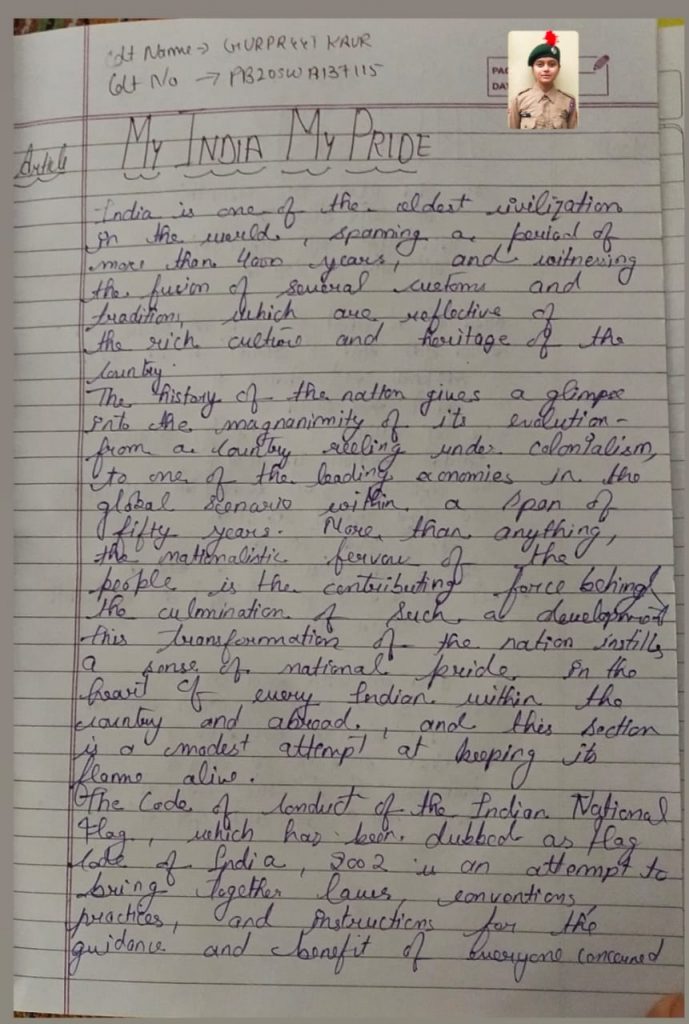 Cdt Name → GURPREET KAUR
Cdt No → PB20SWA137115
PAG
DAT
Article
MY INDIA MY PRIDE
India is one of the oldest civilization
in the world, spanning a period of
more than 4000 years, and witnessing
the fusion of several customs and
tradition, which are reflective of
the rich culture and heritage of the
country.
The history of the nation gives a glimpse
into the magnanimity of its evolution -
from a country reeling under colonialism,
to one of the leading economies in the
global scenario within a span of
fifty years. More than anything,
the nationalistic fervour of the
people is the contributing force behind
the culmination of such a development
this transformation of the nation instills
a sense of national pride in the
heart of every Indian within the
country and abroad, and this section
is a modest attempt at keeping its
flame alive.
The Code of Conduct of the Indian National
Flag, which has been dubbed as flag
Code of India, 2002 is an attempt to
bring together laws, conventions,
practices, and instructions for the
guidance and benefit of everyone concerned